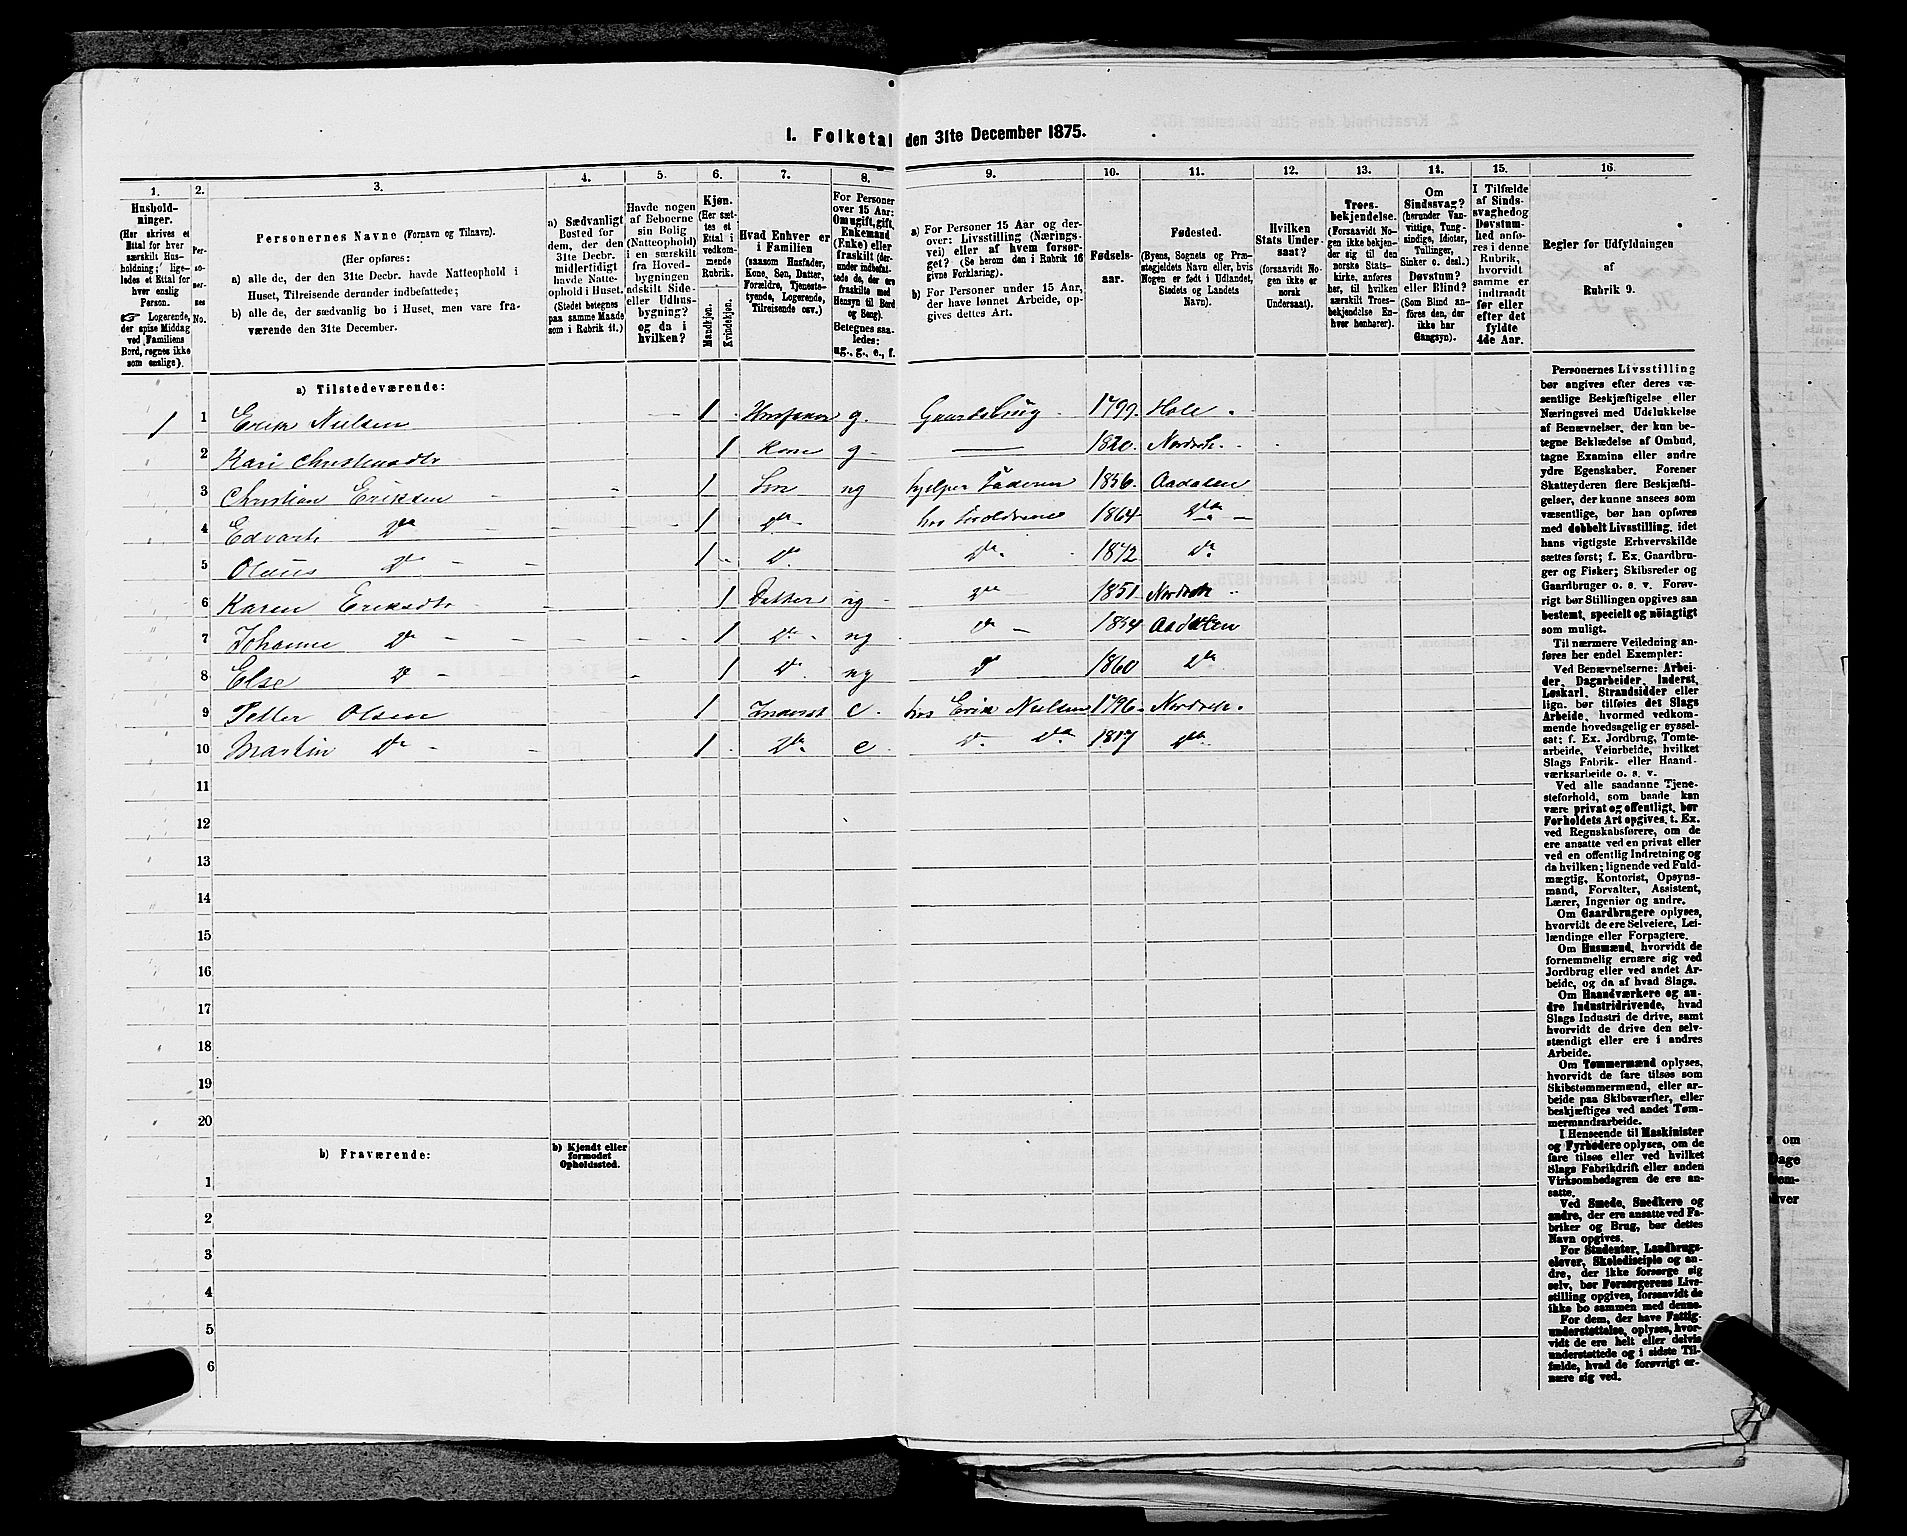 I. Folketal den 31te December 1875.
1. 2. 3. 4. 5. 6. 7. 8. 9. 10. 11. 12. 13. 14. 15. 16.
Hushold-
ninger.
(Her skrives et
Ettal for hver
særskilt Hus-
holdning; lige-
ledes et Ettal for
hver enslig
Person.
☞ Logerende,
der spise Middag
ved Familiens
Bord, regnes ikke
som enslige).
Per-
so-
ner-
nes
No.
Personernes Navne (Fornavn og Tilnavn).
(Her opføres:
a) alle de, der den 31te Decbr. havde Natteophold i
Huset, Tilreisende derunder indbefattede;
b) alle de, der sædvanlig bo i Huset, men vare fra-
værende den 31te December.
a) Sædvanligt
Bosted for
dem, der den
31te Decbr.
midlertidigt
havde Natte-
ophold i Huset.
(Stedet betegnes
paa samme Maade
som i Rubrik 11.)
Havde nogen
af Beboerne
sin Bolig
(Natteophold)
i en særskilt
fra Hoved-
bygningen
adskilt Side-
eller Udhus-
bygning?
og da i
hvilken?
Kjøn.
(Her sæt-
tes et
Ettal i
vedkom-
mende
Rubrik.
Mandkjøn.
Kvindekjøn.
Hvad Enhver er
i Familien
(saasom Husfader,
Kone, Søn, Datter,
Forældre, Tjeneste-
tyende, Logerende,
Tilreisende osv.)
For Personer
over 15 Aar:
Om ugift, gift,
Enkemand
(Enke) eller
fraskilt (der-
under indbefat-
tede de, der ere
fraskilte med
Hensyn til Bord
og Seng).
Betegnes saa-
ledes:
ug., g., e., f.
a) For Personer 15 Aar og der-
over: Livsstilling (Nærings-
vei) eller af hvem forsør-
get? (Se herom den i Rubrik 16
givne Forklaring).
b) For Personer under 15 Aar,
der have lønnet Arbeide, op-
gives dettes Art.
Fødsels-
aar.
Fødested.
(Byens, Sognets og Præ-
stegjeldets Navn eller, hvis
Nogen er født i Udlandet,
Stedets og Landets
Navn).
Hvilken
Stats Under-
saat?
(forsaavidt No-
gen ikke er
norsk
Undersaat).
Troes-
bekjendelse.
(Forsaavidt No-
gen ikke bekjen-
der sig til den
norske Stats-
kirke, anføres
her, til hvilken
særskilt Troes-
bekjendelse En-
hver henhører).
Om
Sindssvag?
(herunder Van-
vittige, Tung-
sindige, Idioter,
Tullinger,
Sinker o. desl.)
Døvstum?
eller Blind?
(Som Blind an-
føres den, der
ikke har
Gangsyn).
I Tilfælde
af Sinds-
svaghed og
Døvstum-
hed anfø-
res i denne
Rubrik,
hvorvidt
samme er
indtraadt
før eller
efter det
fyldte
4de Aar.
Regler for Udfyldningen
af
Rubrik 9.
a) Tilstedeværende:
1 1 Erik Nielsen 1 Husfader g. Gaardsbrug 1799. Hole
2 Kari 1 Kone g 1820. Norderh.
3 Christian Eriksen 1 Søn ug hjelper Faderen 1856. Aadalen
4 Edvart Do 1 Do hos Forældrene 1864 Do
5 Olaus Do 1 Do Do 1872 Do
6 Karen Eriksdtr 1 Datter ug Do 1851 Norderh
7 Johanne Do 1 Do ug Do 1854 Aadalen
8 Else Do 1 Do ug Do 1860 Do
9 Petter Olsen 1 Inderst e. hos Erik Nielsen 1796. Norderh.
10 Martin Do 1 Do e Do Do 1817 Do
11
12
13
14
15
16
17
18
19
20
b) Fraværende:
b) Kjendt eller
formodet
Opholdssted.
1
2
3
4
5
6
Personernes Livsstilling
bør angives efter deres væ-
sentlige Beskjæftigelse eller
Næringsvei med Udelukkelse
af Benævnelser, der kun be-
tegne Beklædelse af Ombud,
tagne Examina eller andre
ydre Egenskaber. Forener
Skatteyderen flere Beskjæfti-
gelser, der kunne ansees som
væsentlige, bør han opføres
med dobbelt Livsstilling, idet
hans vigtigste Erhvervskilde
sættes først; f. Ex. Gaardbru-
ger og Fisker; Skibsreder og
Gaardbruger o. s. v. Forøv-
rigt bør Stillingen opgives saa
bestemt, specielt og nøiagtigt
som muligt.
Til nærmere Veiledning an-
føres her endel Exempler:
Ved Benævnelserne: Arbei-
der, Dagarbeider, Inderst,
Løskarl, Strandsidder eller
lign. bør tilføies det Slags
Arbeide, hvormed vedkom-
mende hovedsagelig er syssel-
sat; f. Ex. Jordbrug, Tomte-
arbeide, Veiarbeide, hvilket
Slags Fabrik- eller Haand-
værksarbeide o. s. v.
Ved alle saadanne Tjene-
steforhold, som baade kan
være privat og offentligt, bør
Forholdets Art opgives, t. Ex.
ved Regnskabsførere, om de
ere ansatte ved en privat eller
ved en offentlig Indretning og
da hvilken; lignende ved Fuld-
mægtig, Kontorist, Opsyns-
mand, Forvalter, Assistent,
Lærer, Ingeniør og andre.
Om Gaardbrugere oplyses,
hvorvidt de ere Selveiere, Lei-
lændinge eller Forpagtere.
Om Husmænd, hvorvidt de
fornemmelig ernære sig ved
Jordbrug eller ved andet Ar-
beide, og da af hvad Slags.
Om Haandværkere og an-
dre Industridrivende, hvad
Slags Industri de drive, samt
hvorvidt de drive den selv-
stændigt eller ere i andres
Arbeide.
Om Tømmermænd oplyses,
hvorvidt de fare tilsøs som
Skibstømmermænd, eller ar-
beide paa Skibsværfter, eller
beskjæftiges ved andet Tøm-
mermandsarbeide.
I Henseende til Maskinister
og Fyrbødere oplyses, om de
fare tilsøs eller ved hvilket
Slags Fabrikdrift eller anden
Virksomhedsgren de ere an-
satte.
Ved Smede, Snedkere og
andre, der ere ansatte ved Fa-
briker og Brug, bør dettes
Navn opgives.
For Studenter, Landbrugs-
elever, Skoledisciple og an-
dre, der ikke forsørge sig
selv, bør Forsørgerens Livs-
stilling opgives, forsaavidt de
ikke bo sammen med denne.
For dem, der have Fattig-
understøttelse, oplyses, hvor-
vidt de ere helt eller delvis
understøttede og i sidste Til-
fælde, hvad de forøvrigt er-
nære sig ved.